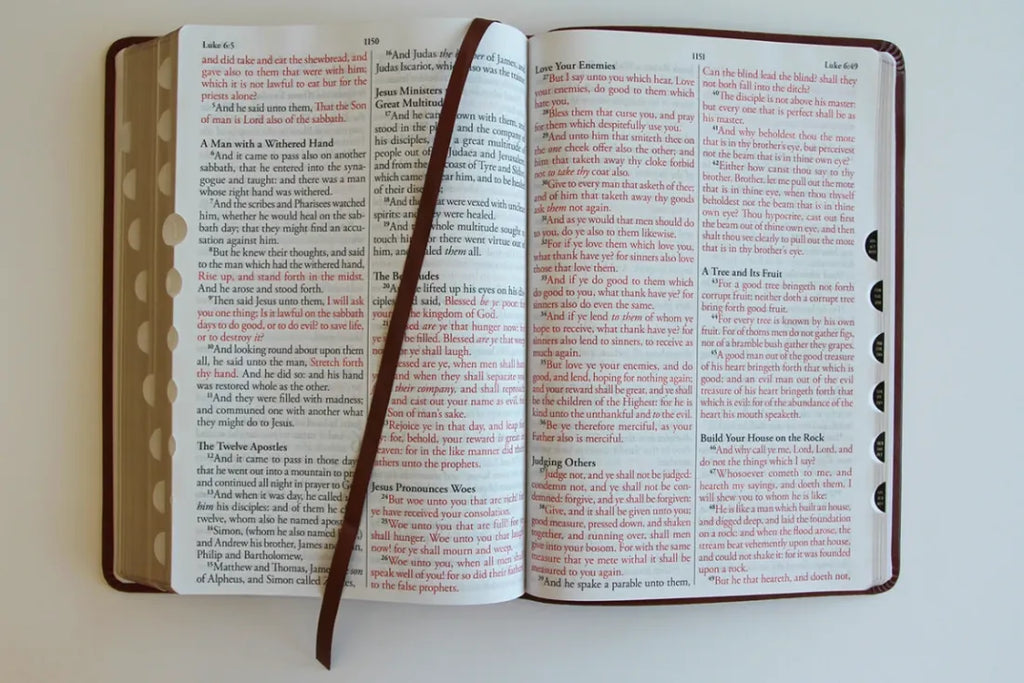 Luke 6:5
1150
and did take and eat the shewbread, and
gave also to them that were with him;
which it is not lawful to eat but for the
priests alone?
5And he said unto them, That the Son
of man is Lord also of the sabbath.
A Man with a Withered Hand
6And it came to pass also on another
sabbath, that he entered into the syna-
gogue and taught: and there was a man
whose right hand was withered.
7And the scribes and Pharisees watched
him, whether he would heal on the sab-
bath day; that they might find an accu-
sation against him.
8But he knew their thoughts, and said
to the man which had the withered hand,
Rise up, and stand forth in the midst.
And he arose and stood forth.
9Then said Jesus unto them, I will ask
you one thing; Is it lawful on the sabbath
days to do good, or to do evil? to save life,
or to destroy it?
10And looking round about upon them
all, he said unto the man, Stretch forth
thy hand. And he did so: and his hand
was restored whole as the other.
11And they were filled with madness;
and communed one with another what
they might do to Jesus.
The Twelve Apostles
12And it came to pass in those days,
that he went out into a mountain to pr
and continued all night in prayer to G
13And when it was day, he called
him his disciples: and of them he c
twelve, whom also he named apost
14Simon, (whom he also named
and Andrew his brother, James an
Philip and Bartholomew,
15Matthew and Thomas, Jame son
of Alpheus, and Simon called Z es,
16And Judas the b er of James, and
Judas Iscariot, whic so was the
Jesus Ministers
Great Multitud
17And he ca own with them, and
stood in the p and the company
his disciples, a great multitude
people out Judaea and Jerusalem
and from the coast of Tyre and Sid
which came ear him, and to be heal
of their dise
18And the at were vexed with unclea
spirits: and y were healed.
19And th whole multitude sought
touch hi or there went virtue out
him, and aled them all.
The Be udes
20And e lifted up his eyes on his di
ciples d said, Blessed be ye poor:
you he kingdom of God.
21 sed are ye that hunger now: for
ye s be filled. Blessed are ye that we
no or ye shall laugh.
essed are ye, when men shall ha
and when they shall separate yo
their company, and shall reproa
and cast out your name as evil, for
Son of man's sake.
Rejoice ye in that day, and leap fo
y: for, behold, your reward is great in
eaven: for in the like manner did the
athers unto the prophets.
Jesus Pronounces Woes
24But woe unto you that are rich! for
ye have received your consolation.
25Woe unto you that are full! for ye
shall hunger. Woe unto you that laugh
now! for ye shall mourn and weep.
26Woe unto you, when all men shall
speak well of you! for so did their fathers
to the false prophets.
1151
Luke 6:49
Love Your Enemies
27But I say unto you which hear, Love
your enemies, do good to them which
hate you,
28Bless them that curse you, and pray
for them which despitefully use you.
29And unto him that smiteth thee on
the one cheek offer also the other; and
him that taketh away thy cloke forbid
not to take thy coat also.
30Give to every man that asketh of thee;
and of him that taketh away thy goods
ask them not again.
31And as ye would that men should do
to you, do ye also to them likewise.
32For if ye love them which love you,
what thank have ye? for sinners also love
those that love them.
33And if ye do good to them which
do good to you, what thank have ye? for
sinners also do even the same.
34And if ye lend to them of whom ye
hope to receive, what thank have ye? for
sinners also lend to sinners, to receive as
much again.
35But love ye your enemies, and do
good, and lend, hoping for nothing again;
and your reward shall be great, and ye shall
be the children of the Highest: for he is
kind unto the unthankful and to the evil.
36Be ye therefore merciful, as your
Father also is merciful.
Judging Others
37Judge not, and ye shall not be judged:
condemn not, and ye shall not be con-
demned: forgive, and ye shall be forgiven:
38Give, and it shall be given unto you;
good measure, pressed down, and shaken
together, and running over, shall men
give into your bosom. For with the same
measure that ye mete withal it shall be
measured to you again.
39And he spake a parable unto them,
Can the blind lead the blind? shall they
not both fall into the ditch?
40The disciple is not above his master:
but every one that is perfect shall be as
his master.
41And why beholdest thou the mote
that is in thy brother's eye, but perceivest
not the beam that is in thine own eye?
42Either how canst thou say to thy
brother, Brother, let me pull out the mote
that is in thine eye, when thou thyself
beholdest not the beam that is in thine
own eye? Thou hypocrite, cast out first
the beam out of thine own eye, and then
shalt thou see clearly to pull out the mote
that is in thy brother's eye.
A Tree and Its Fruit
43For a good tree bringeth not forth
corrupt fruit; neither doth a corrupt tree
bring forth good fruit.
44For every tree is known by his own
fruit. For of thorns men do not gather figs,
nor of a bramble bush gather they grapes.
45A good man out of the good treasure
of his heart bringeth forth that which is
good; and an evil man out of the evil
treasure of his heart bringeth forth that
which is evil: for of the abundance of the
heart his mouth speaketh.
Build Your House on the Rock
46And why call ye me, Lord, Lord, and
do not the things which I say?
47Whosoever cometh to me, and
heareth my sayings, and doeth them, I
will shew you to whom he is like:
48He is like a man which built an house,
and digged deep, and laid the foundation
on a rock: and when the flood arose, the
stream beat vehemently upon that house,
and could not shake it: for it was founded
upon a rock.
49But he that heareth, and doeth not,